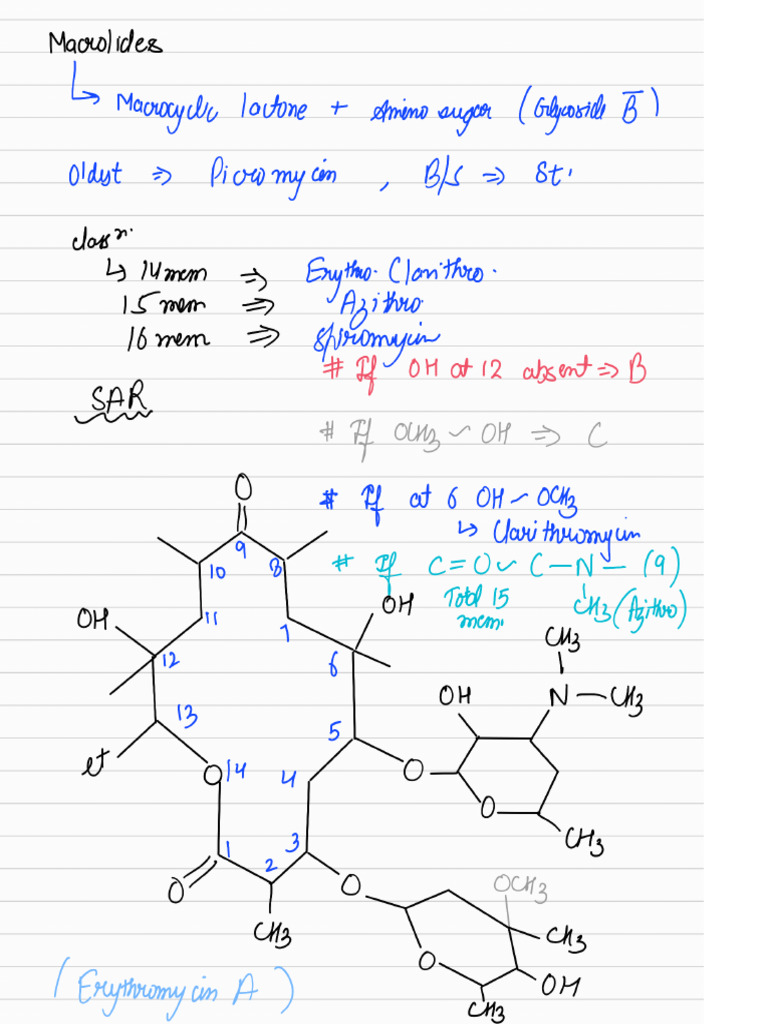 Macrolides
↳ Macrocyclic lactone + Amino sugar (Glycoside B̄)
Oldest ⇒ Picromycin , B/S ⇒ St.
classⁿ.
↳ 14 mem ⇒ Erythro. Clarithro.
15 mem ⇒ Azithro
16 mem ⇒ Spiromycin
# If OH at 12 absent ⇒ B
SAR
# If OCH3 ~ OH ⇒ C
O
# If at 6 OH ~ OCH3
↳ Clarithromycin
9
# If C=O ~ C-N- (9)
10 8
CH3 (Azithro)
Total 15
mem.
OH
OH 11 7
12 6
CH3
OH N-CH3
13 5
et O14 4 O
O
CH3
1 2 3
O O OCH3
CH3 CH3
O OH
CH3
(Erythromycin A)